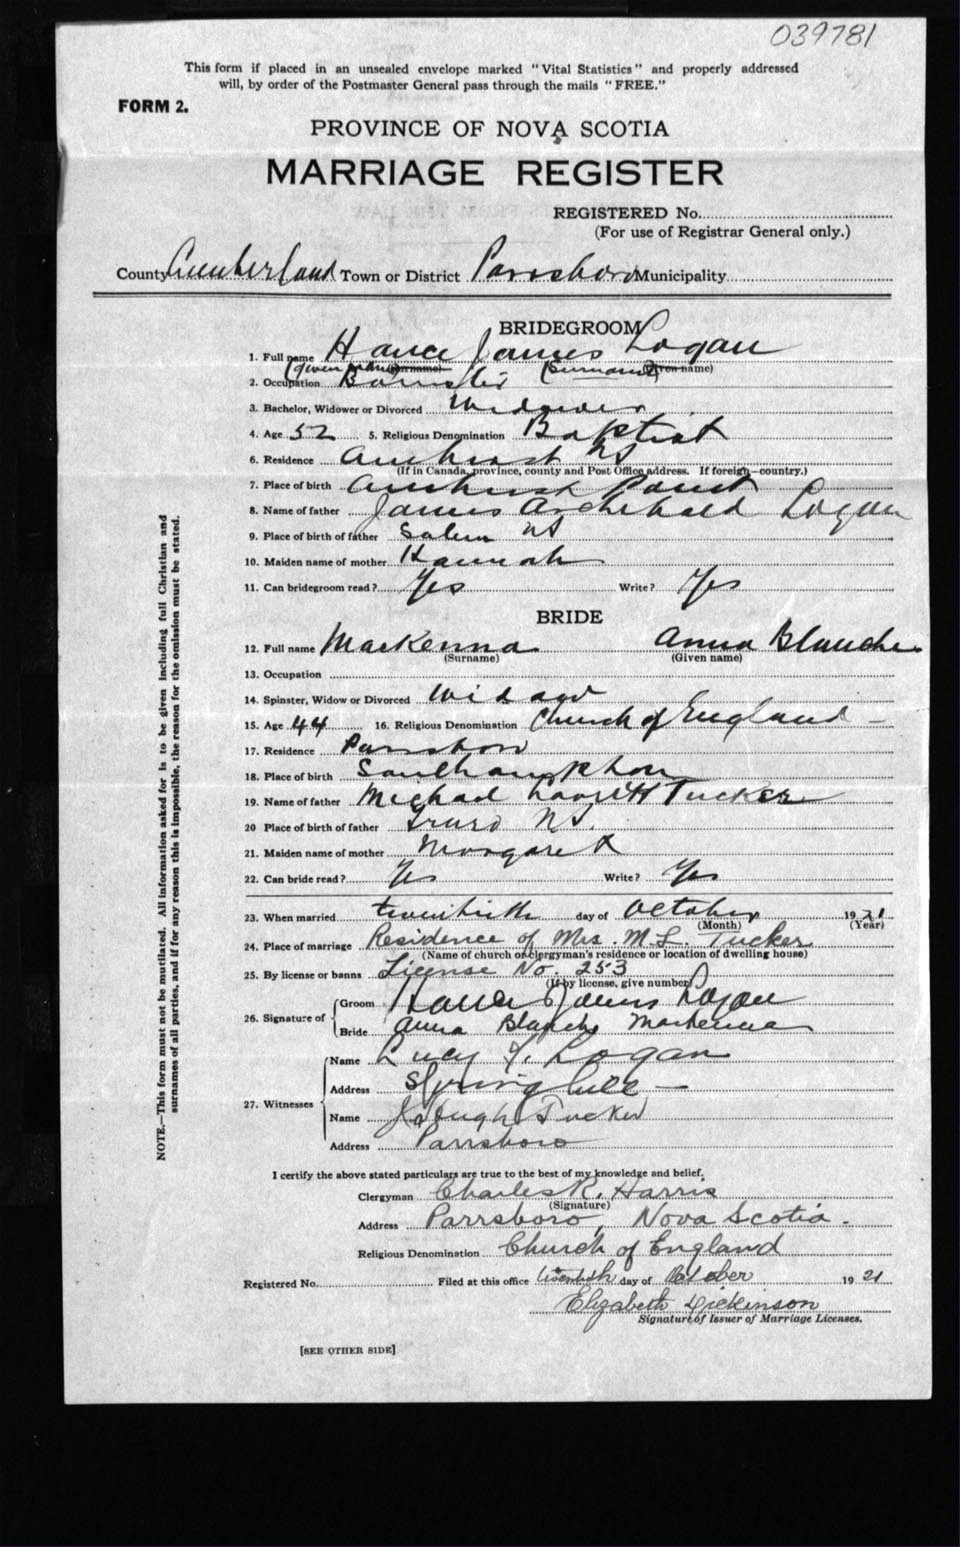 039781
This form if placed in an unsealed envelope marked "Vital Statistics" and properly addressed
will, by order of the Postmaster General pass through the mails "FREE."
FORM 2.
PROVINCE OF NOVA SCOTIA
MARRIAGE REGISTER
REGISTERED No.
(For use of Registrar General only.)
County Cumberland Town or District Parrsboro Municipality
BRIDEGROOM
1. Full name Hance James Logan
(given name) (surname) (Given name)
2. Occupation Barrister
3. Bachelor, Widower or Divorced Widower
4. Age 52 5. Religious Denomination Baptist
6. Residence Amherst NS
(If in Canada, province, county and Post Office address. If foreign—country.)
7. Place of birth Amherst Point
8. Name of father James Archibald Logan
9. Place of birth of father Salem NS
10. Maiden name of mother Hannah
11. Can bridegroom read? Yes Write? Yes
BRIDE
12. Full name MacKenna Anna Blanche
(Surname) (Given name)
13. Occupation
14. Spinster, Widow or Divorced Widow
15. Age 44 16. Religious Denomination Church of England
17. Residence Parrsboro
18. Place of birth Southampton
19. Name of father Michael Tucker
20 Place of birth of father Truro NS.
21. Maiden name of mother Margaret
22. Can bride read? Yes Write? Yes
23. When married twentieth day of October 1921
(Month) (Year)
24. Place of marriage Residence of Mrs. M L Tucker
(Name of church or clergyman's residence or location of dwelling house)
25. By license or banns License No. 253
(If by license, give number)
26. Signature of Groom Hance James Logan
Bride Anna Blanche MacKenna
27. Witnesses
Name Lucy Logan
Address Springhill
Name Hugh Tucker
Address Parrsboro
I certify the above stated particulars are true to the best of my knowledge and belief.
Clergyman Charles R. Harris
(Signature)
Address Parrsboro, Nova Scotia.
Religious Denomination Church of England
Registered No. Filed at this office twentieth day of October 1921
Elizabeth Dickinson
Signature of Issuer of Marriage Licenses.
[SEE OTHER SIDE]
NOTE.—This form must not be mutilated. All information asked for is to be given including full Christian and
surnames of all parties, and if for any reason this is impossible, the reason for the omission must be stated.